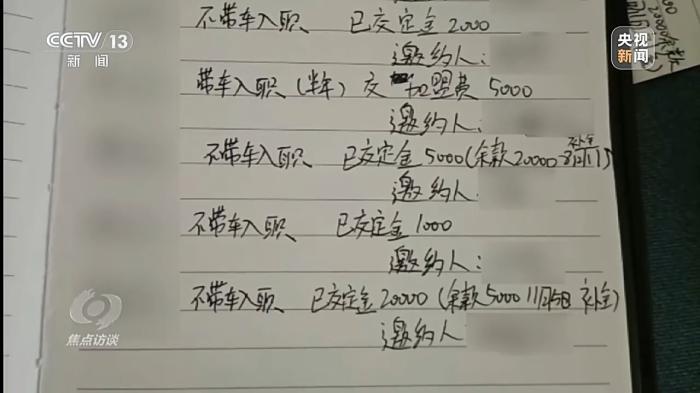 CCTV 13
新闻
央视
新闻
20000余款
不带车入职、 已交定金 2000
邀约人:
带车入职 (半年) 交 加盟费 5000
邀约人:
不带车入职、 已交定金 5000 (余款20000 补全
邀约人
不带车入职、 已交定金 1000
邀约人:
不带车入职、 已交定金 20000 (余款5000 11月5日 补全)
邀约人
焦点访谈